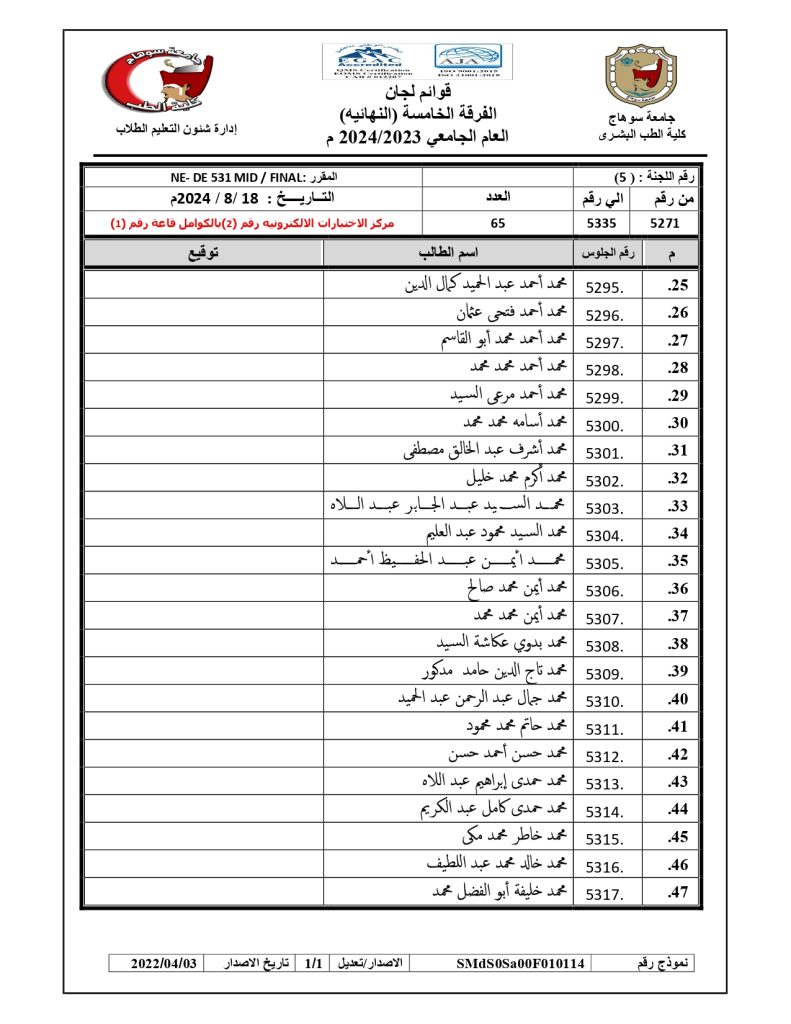 جامعة سوهاج
كلية الطب البشرى
EGAC
Accredited
QMS Certification
EOMS Certification
CAB # 012207
AJA
ISO 9001:2015
ISO 21001:2018
قوائم لجان
الفرقة الخامسة (النهائيه)
العام الجامعي 2024/2023 م
جامعة سوهاج
كلية الطب
إدارة شئون التعليم الطلاب
رقم اللجنة : ( 5) المقرر :NE- DE 531 MID / FINAL
من رقم الي رقم العدد التــاريــــخ : 18 /8 / 2024م
5271 5335 65 مركز الاختبارات الالكترونيه رقم (2)بالكوامل قاعة رقم (1)
م رقم الجلوس اسم الطالب توقيع
25. 5295. محمد أحمد عبد الحميد كمال الدين
26. 5296. محمد أحمد فتحى عثمان
27. 5297. محمد أحمد محمد أبو القاسم
28. 5298. محمد أحمد محمد محمد
29. 5299. محمد أحمد مرعى السيد
30. 5300. محمد أسامه محمد محمد
31. 5301. محمد أشرف عبد الخالق مصطفى
32. 5302. محمد أكرم محمد خليل
33. 5303. محمــد الســيد عبــد الجــابر عبــد الــلاه
34. 5304. محمد السيد محمود عبد العليم
35. 5305. محمـــد أيمـــن عبـــد الحفـــيظ أحمـــد
36. 5306. محمد أيمن محمد صالح
37. 5307. محمد أيمن محمد محمد
38. 5308. محمد بدوي عكاشة السيد
39. 5309. محمد تاج الدين حامد مدكور
40. 5310. محمد جمال عبد الرحمن عبد الحميد
41. 5311. محمد حاتم محمد محمود
42. 5312. محمد حسن أحمد حسن
43. 5313. محمد حمدى إبراهيم عبد اللاه
44. 5314. محمد حمدى كامل عبد الكريم
45. 5315. محمد خاطر محمد مكى
46. 5316. محمد خالد محمد عبد اللطيف
47. 5317. محمد خليفة أبو الفضل محمد
نموذج رقم SMdS0Sa00F010114 الاصدار/تعديل 1/1 تاريخ الاصدار 2022/04/03